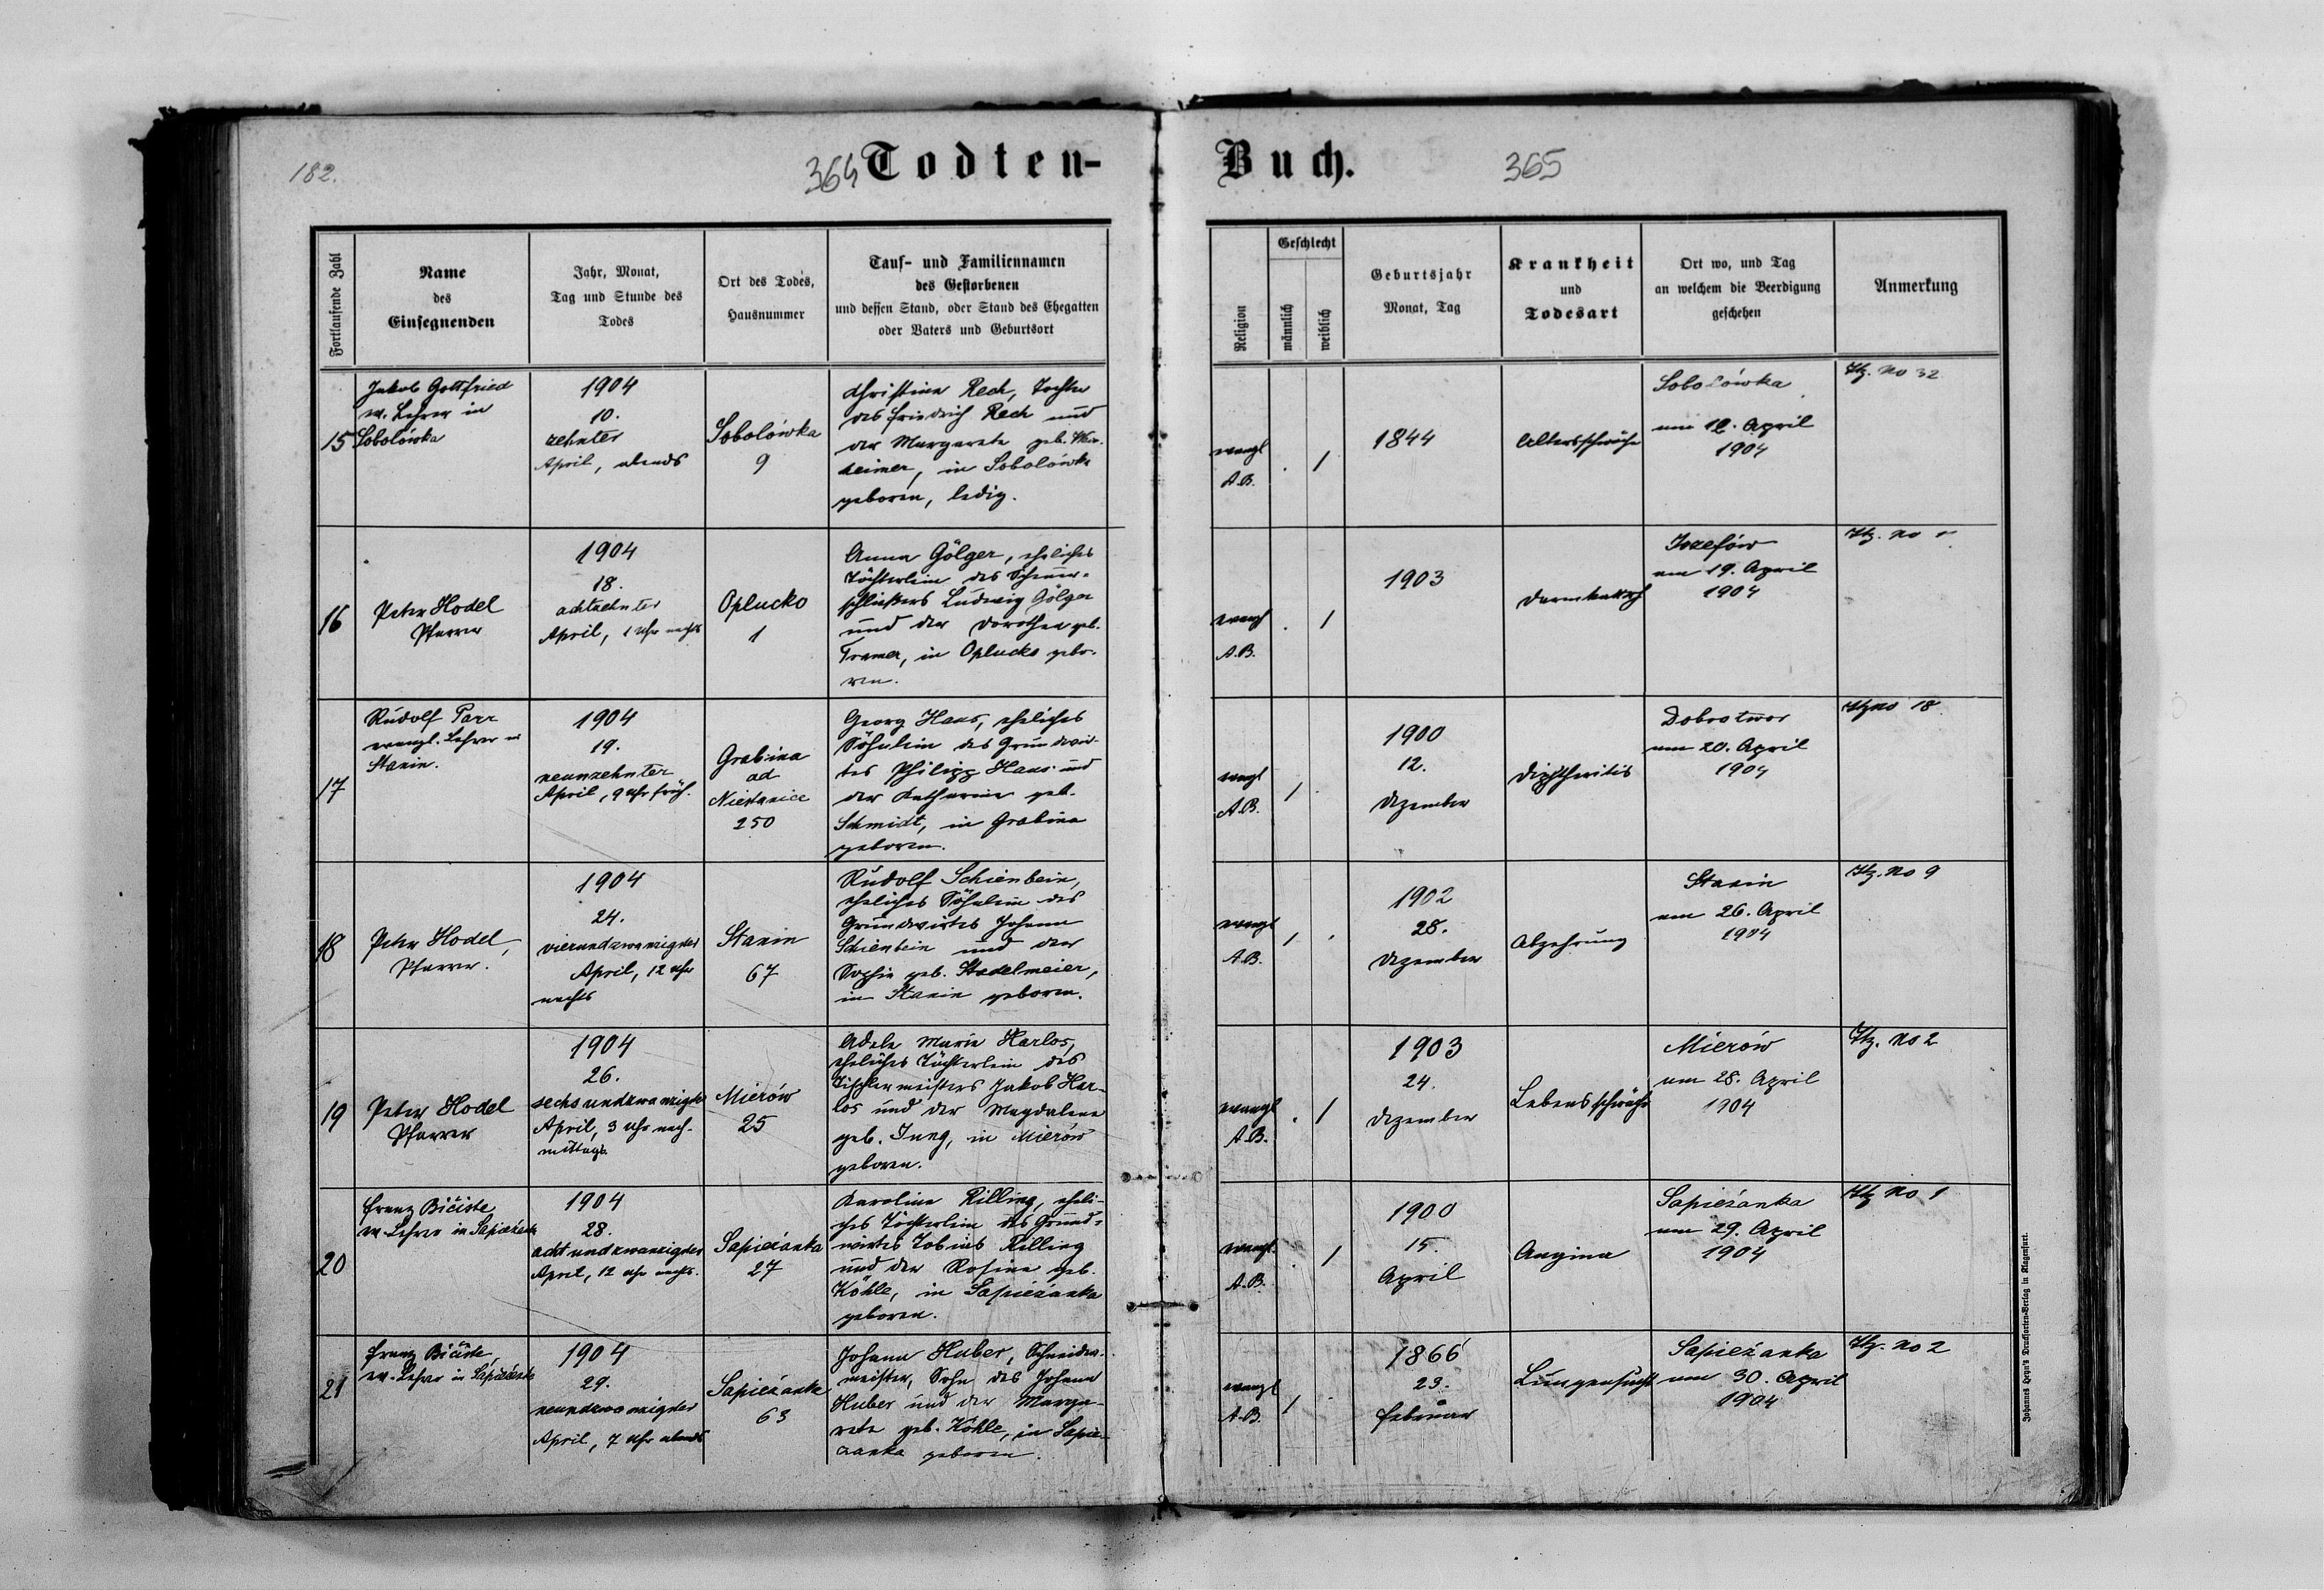 182.
364 Todten-
Buch. 365
Fortlaufende Zahl
Name
des
Einsegnenden
Jahr, Monat,
Tag und Stunde des
Todes
Ort des Todes,
Hausnummer
Tauf- und Familiennamen
des Gestorbenen
und dessen Stand, oder Stand des Ehegatten
oder Vaters und Geburtsort
Religion
Geschlecht
männlich
weiblich
Geburtsjahr
Monat, Tag
Krankheit
und
Todesart
Ort wo, und Tag
an welchem die Beerdigung
geschehen
Anmerkung
15
Jakob Gottfried
ev. Lehrer in
Sobolówka
1904
10.
zehnter
April, abends
Sobolówka
9
Christina Rech, Tochter
des Friedrich Rech und
der Margarete geb.
heimer, in Sobolówka
geboren, ledig.
evangl
A.B.
. /
1844
Altersschwäche
Sobolówka
am 12. April
1904
Itz. No 32
16
Peter Hodel
Pfarrer
1904
18.
achtzehnter
April, 1 Uhr nachts
Oplucko
1
Anna Gölger, eheliches
Töchterlein des
schließers Ludwig Gölger
und der Dorothea geb.
Tramer, in Oplucko gebo-
ren.
evangl
A.B.
. /
1903
Darmkatarrh
Josefów
am 19. April
1904
Itz. No
17
Rudolf Parr
evangl. Lehrer in
Stanin.
1904
19.
neunzehnter
April, 9 Uhr früh.
Grabina
ad
Niestanice
250
Georg Haas, eheliches
Söhnlein des Grundwir-
tes Philipp Haas und
der Katharina geb.
Schmidt, in Grabina
geboren.
evangl
A.B.
/ .
1900
12.
Dezember
Diphtheritis
Dobrotwor
am 20. April
1904
Itz No 18
18
Peter Hodel,
Pfarrer.
1904
24.
vierundzwanzigster
April, 12 Uhr
nachts
Stanin
67
Rudolf Schienbein,
eheliches Söhnlein des
Grundwirtes Johann
Schienbein und der
Sophie geb. Stadelmeier,
in Stanin geboren.
evangl
A.B.
/ .
1902
28.
Dezember
Abzehrung
Stanin
am 26. April
1904
Itz. No 9
19
Peter Hodel
Pfarrer
1904
26.
sechsundzwanzigster
April, 3 Uhr nach-
mittags.
Mierów
25
Adele Marie Harlos,
eheliches Töchterlein des
Tischlermeisters Jakob Har-
los und der Magdalena
geb. Jung, in Mierów
geboren.
evangl
A.B.
. /
1903
24.
Dezember
Lebensschwäche
Mierów
am 28. April
1904
Itz. No 2
20
Franz Bičiste
ev. Lehrer in Sapieżanka
1904
28.
achtundzwanzigster
April, 12 Uhr nachts.
Sapieżanka
27
Karolina Rilling, eheli-
ches Töchterlein des Grund-
wirtes Tobias Rilling
und der Rosina geb.
Köhle, in Sapieżanka
geboren.
evangl.
A.B.
. /
1900
15.
April
Angina
Sapieżanka
am 29. April
1904
Itz No 1
21
Franz Bičiste,
ev. Lehrer in Sapieżanka
1904
29.
neunundzwanzigster
April, 7 Uhr abends
Sapieżanka
63
Johann Huber, Schneider-
meister, Sohn des Johann
Huber und der Marga-
rete geb. Köhle, in Sapie-
zanka geboren.
evangl
A.B.
/ .
1866
23.
Februar
Lungensucht
Sapieżanka
am 30. April
1904
Itz. No 2
Johannes Heyn's Drucksorten-Verlag in Klagenfurt.